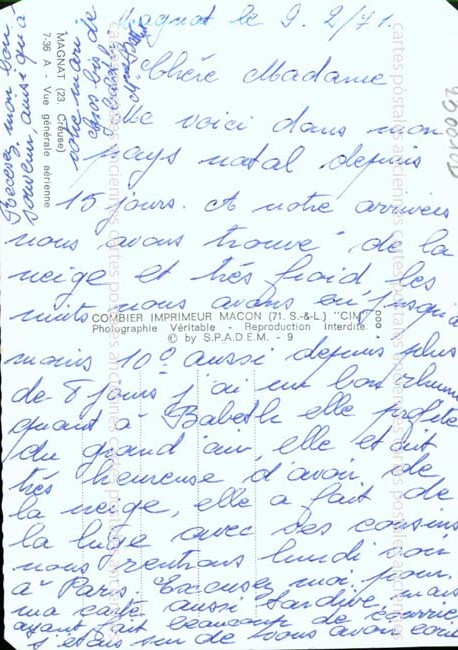 Magnat le 9. 2/71.
Chère Madame
Me voici dans mon
pays natal depuis
15 jours. A notre arrivée
nous avons trouvé de la
neige et très froid les
nuits nous avons eu jusqu'à
moins 10° aussi depuis plus
de 8 jours j'ai un bon rhume
quant à Babeth elle profite
du grand air, elle etait
très heureuse d'avoir de
la neige, elle a fait de
la luge avec ses cousins
nous rentrons lundi soir
à Paris. Excusez moi pour
ma carte aussi tardive, mais
ayant fait beaucoup de courrier
j'etais sur de vous avoir écrit
Recevez mon bon
souvenir, ainsi qu'à
votre mari
Gros bis de
Babeth
MAGNAT (23. Creuse)
7-36 A - Vue générale aérienne
COMBIER IMPRIMEUR MACON (71. S.-&-L.) "CIM"
Photographie Véritable - Reproduction Interdite
© by S.P.A.D.E.M. - 9
cartes postales anciennes